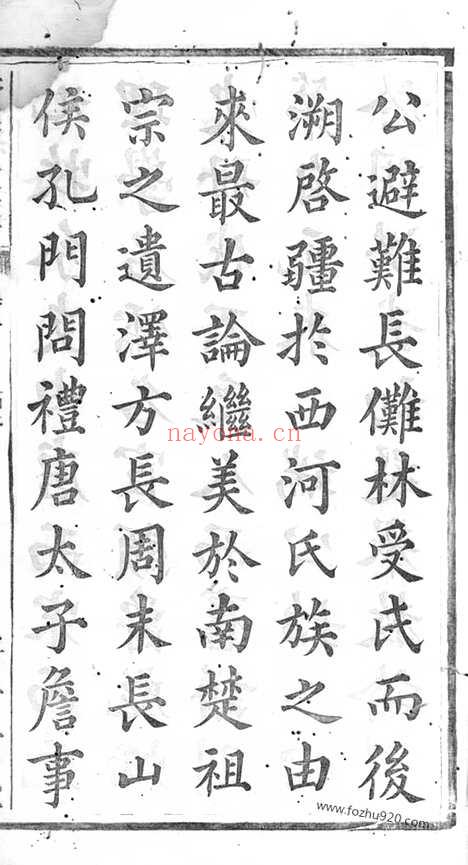 公避難長儺林受氏而後
溯啓疆於西河氏族之由
來最古論繼美於南楚祖
宗之遺澤方長周末長山
侯孔門問禮唐太子詹事
nayona.cn
www.fozhu920.com